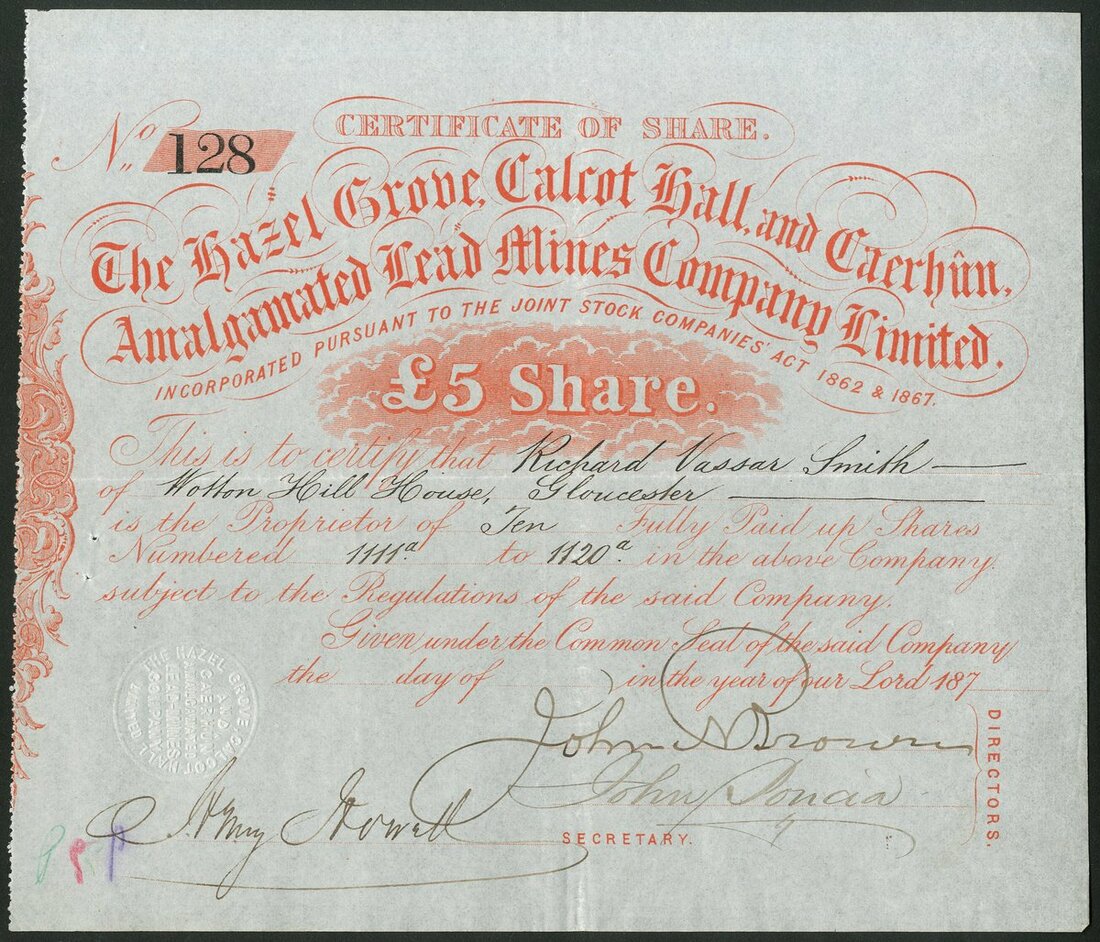 CERTIFICATE OF SHARE.
No. 128
The Hazel Grove, Calcot Hall, and Caerhûn,
Amalgamated Lead Mines Company Limited.
INCORPORATED PURSUANT TO THE JOINT STOCK COMPANIES' ACT 1862 & 1867.
£5 Share.
This is to certify that Richard Vassar Smith
of Wotton Hill House, Gloucester
is the Proprietor of Ten Fully Paid up Shares
Numbered 1111a to 1120a in the above Company.
subject to the Regulations of the said Company.
Given under the Common Seal of the said Company
the day of in the year of our Lord 187
THE HAZEL GROVE CALCOT HALL
AND
CAERHUN
AMALGAMATED
LEAD MINES
COMPANY
LIMITED
John N Brown
John Poncia
DIRECTORS.
Henry Howell
SECRETARY.